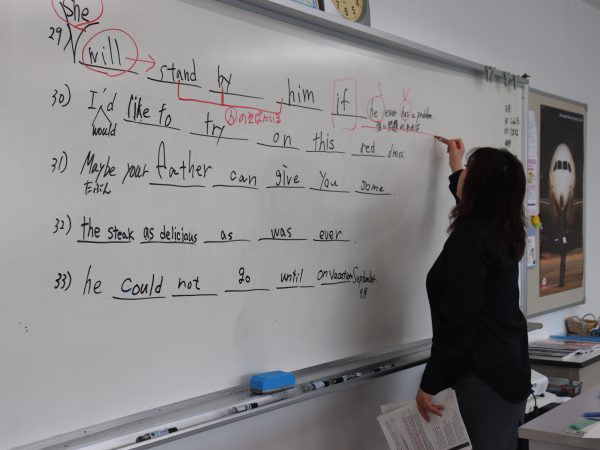 she
29) will stand by him if he ever has a problem
S V
人のそばにいる
30) I'd like to try on this red dress
would
31) Maybe your father can give you some
たぶん
32) the steak as delicious as was ever.
33) he could not go until on vacation September
9月